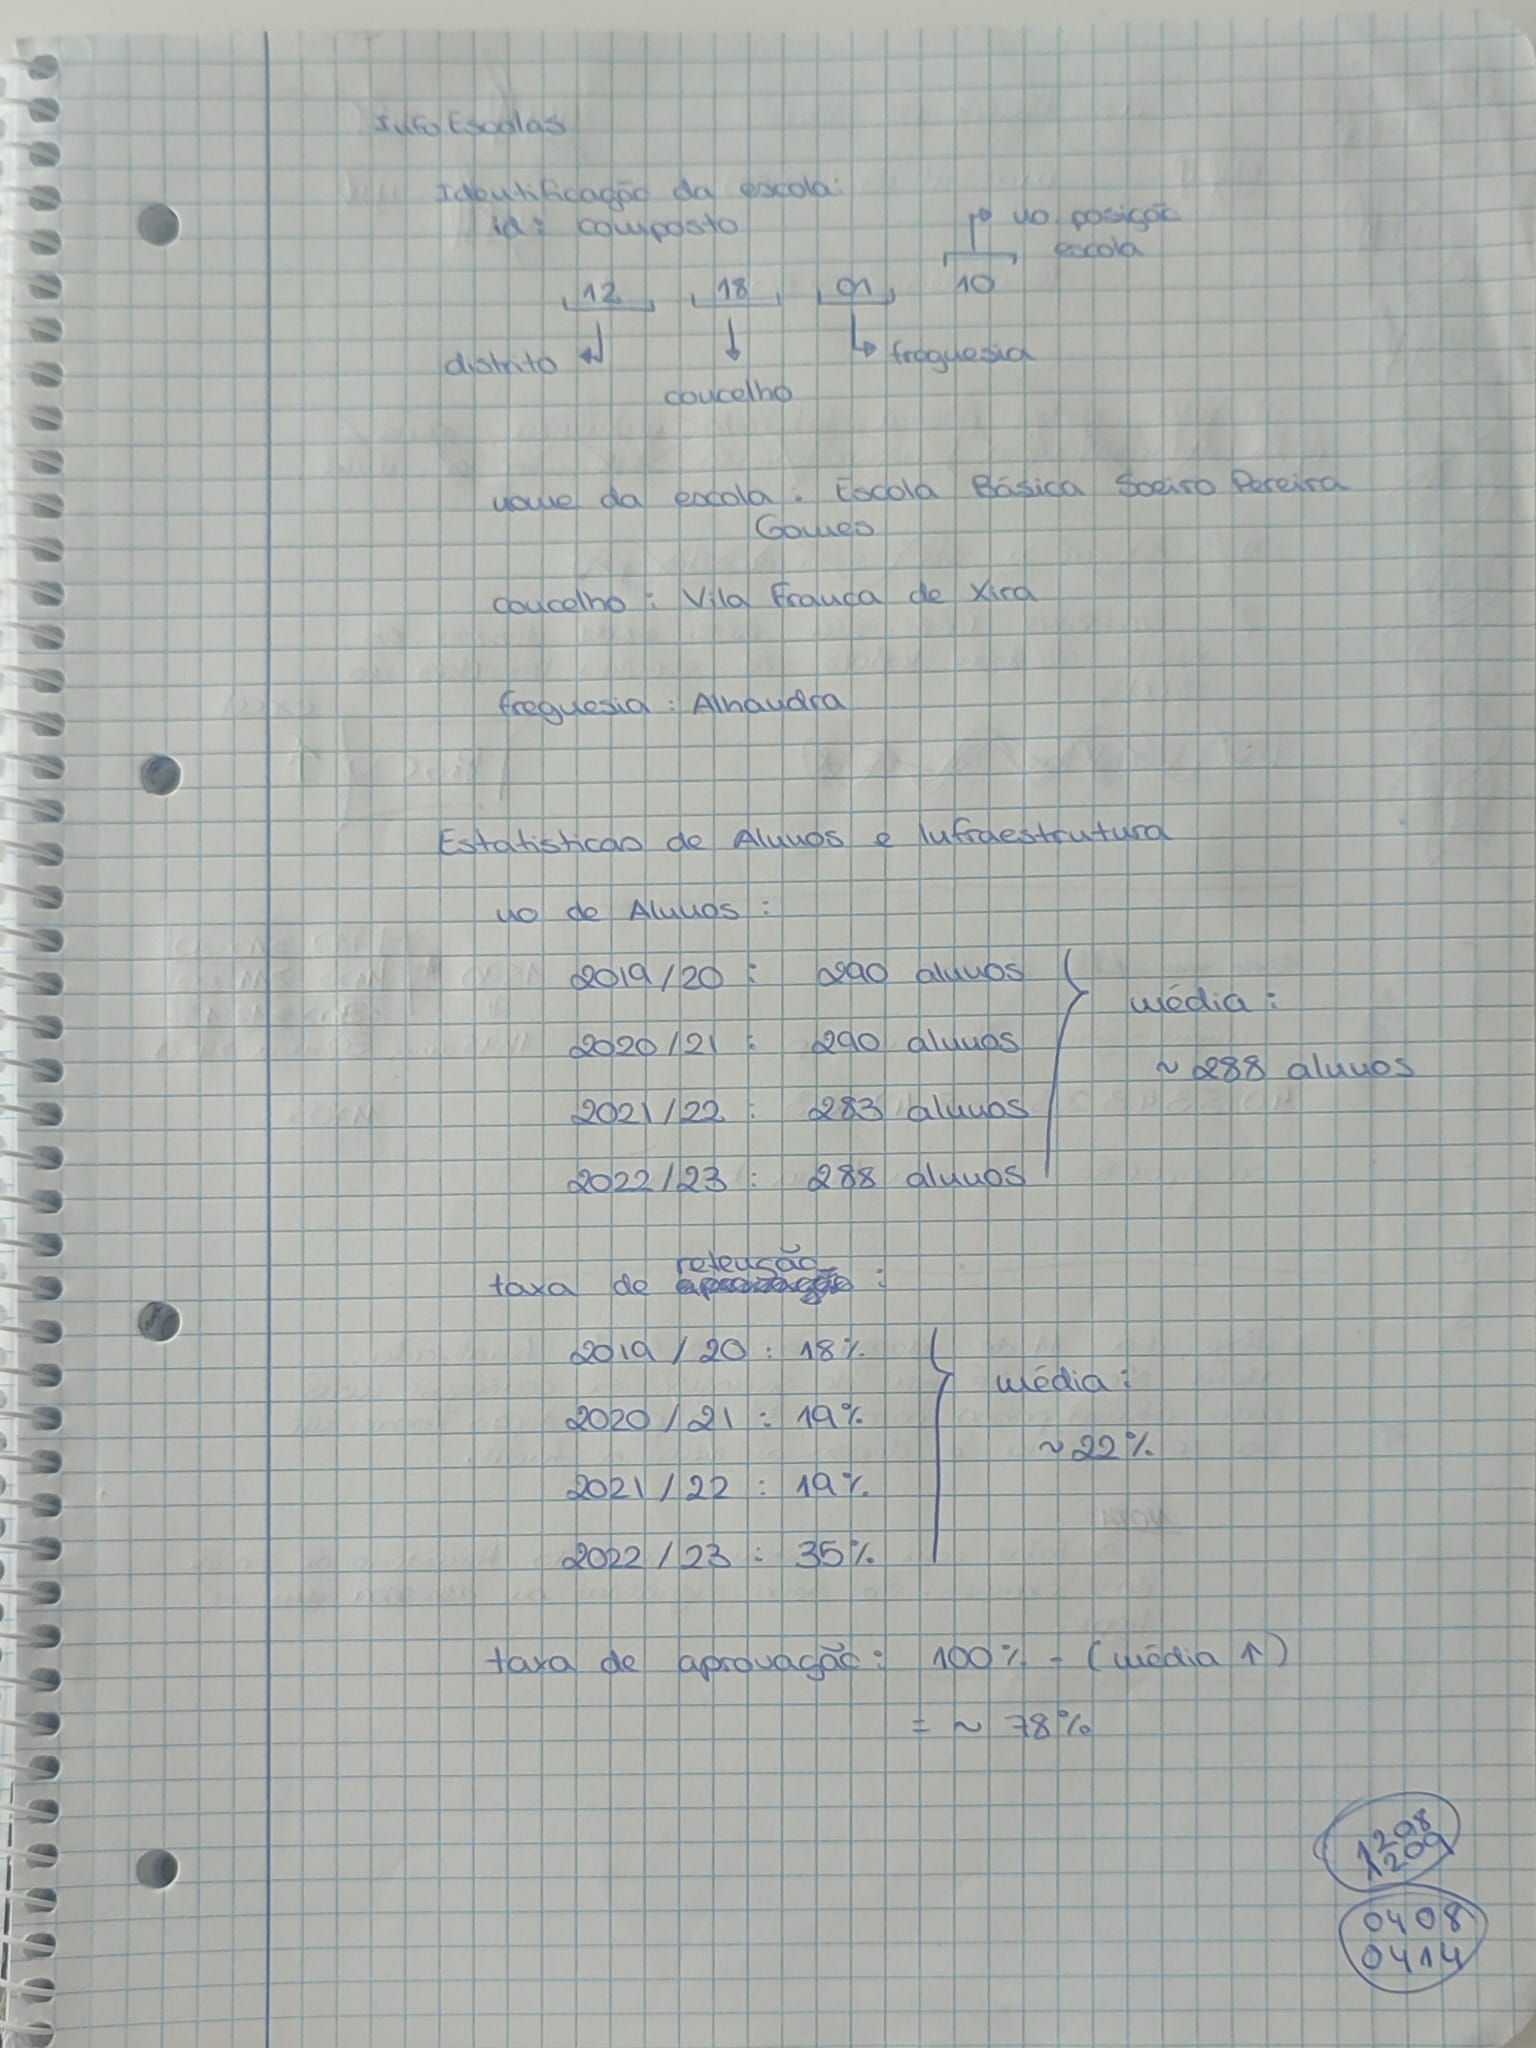 InfoEscolas
Identificação da escola:
id: composto
no posição
escola
12 18 01 10
distrito
concelho
freguesia
nome da escola: Escola Básica Soeiro Pereira
Gomes
concelho: Vila Franca de Xira
freguesia: Alhandra
Estatisticas de Alunos e Infraestrutura
no de Alunos:
2019/20: 290 alunos
2020/21: 290 alunos
2021/22: 283 alunos
2022/23: 288 alunos
média:
~ 288 alunos
taxa de retenção:
2019/20: 18%
2020/21: 19%
2021/22: 19%
2022/23: 35%
média:
~ 22%
taxa de aprovação: 100% - (média ↑)
= ~ 78%
1208
1209
0408
0414